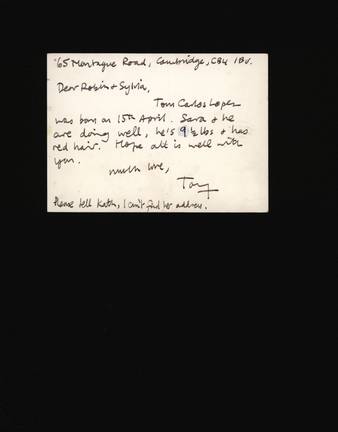 '65 Montague Road, Cambridge, CB4 1BU.
Dear Robin & Sylvia,
Tom Carlos Lopez
was born on 15th April. Sara & he
are doing well, he's 9½ lbs & has
red hair. Hope all is well with
you.
much love,
Tony
Please tell Kath, I can't find her address.